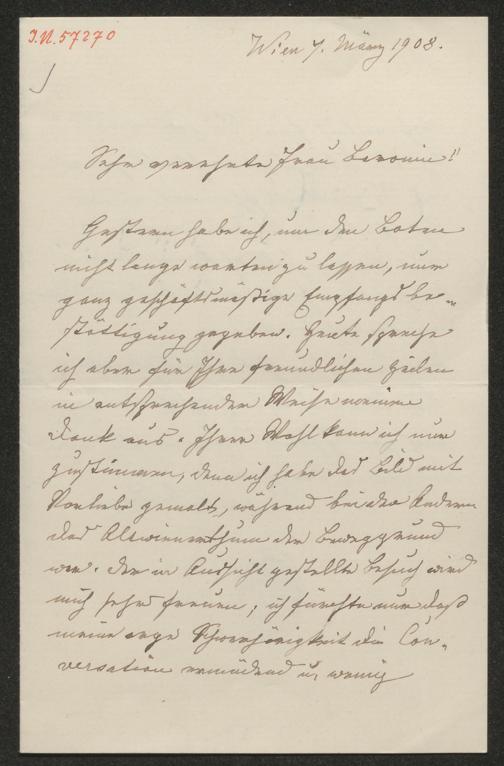 I.N. 57270
Wien 7. März 1908.
Sehr verehrte Frau Baronin!
Gestern habe ich, um den Boten
nicht lange warten zu lassen, nur
ganz geschäftsmäßige Empfangsbe-
stättigung gegeben. Heute spreche
ich aber für Ihre freundlichen Zeilen
in entsprechender Weise meinen
Dank aus. Ihrer Wahl kann ich nur
zustimmen, denn ich habe das Bild mit
Vorliebe gemalt, während bei den Anderen
das Altwienerthum der Beweggrund
war. Der in Aussicht gestellte Besuch wird
mich sehr freuen; ich fürchte nur daß
meine arge Schwerhörigkeit die Con-
versation ermüdend u. wenig